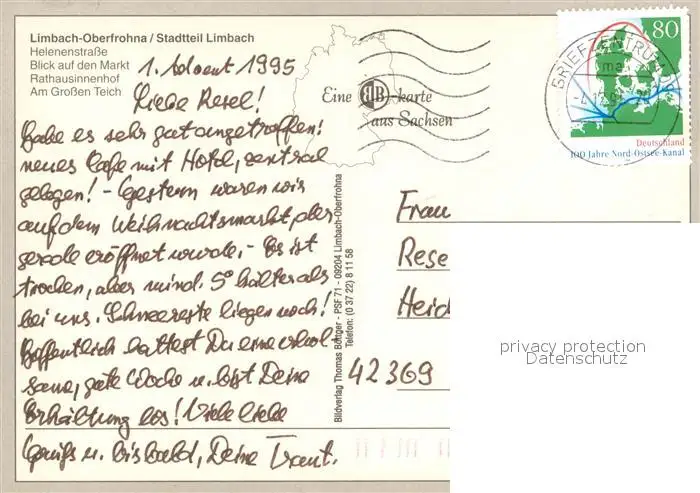 Limbach-Oberfrohna / Stadtteil Limbach
Helenenstraße
Blick auf den Markt
Rathausinnenhof
Am Großen Teich
1. Advent 1995
Liebe Resel!
Habe es sehr gut angetroffen!
neues Cafe mit Hotel, zentral
gelegen! - Gestern waren wir
auf dem Weihnachtsmarkt, der
gerade eröffnet wurde, - Es ist
trocken, aber mind. 5° kälter als
bei uns. Schneereste liegen noch!
Hoffentlich hattest Du eine erhol-
same, gute Woche u. bist Deine
Erkältung los! Viele liebe
Grüße u. bis bald, Deine Traut.
Eine BB-karte
aus Sachsen
Bildverlag Thomas Böttger - PSF 71 - 09204 Limbach-Oberfrohna
Telefon: (0 37 22) 8 11 58
80
Deutschland
100 Jahre Nord-Ostsee-Kanal
BRIEFZENTRUM
Frau
Rese
Heid
42369
privacy protection
Datenschutz